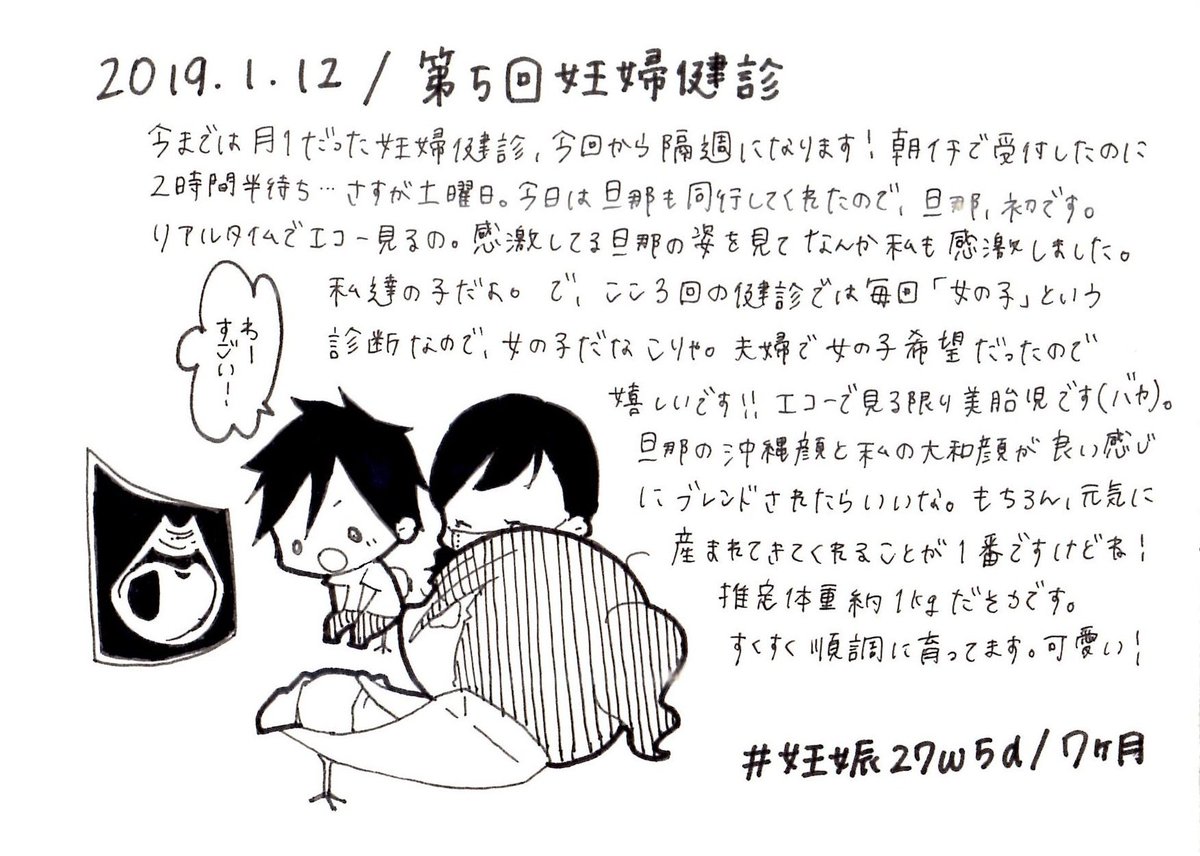 2019.1.12/第5回妊婦健診
今までは月1だった妊婦健診、今回から隔週になります!朝イチで受付したのに
2時間半待ち…さすが土曜日。今日は旦那も同行してくれたので、旦那、初です。
リアルタイムでエコー見るの。感激してる旦那の姿を見てなんか私も感激しました。
私達の子だよ。で、ここ3回の健診では毎回「女の子」という
診断なので、女の子だなこりゃ。夫婦で女の子希望だったので
嬉しいです!!エコーで見る限り美胎児です(バカ)。
旦那の沖縄顔と私の大和顔が良い感じ
にブレンドされたらいいな。もちろん、元気に
産まれてきてくれることが1番ですけどね!
推定体重約1kgだそうです。
すくすく順調に育ってます。可愛い!
わー
すごい!
#妊娠27w5d/7ヶ月